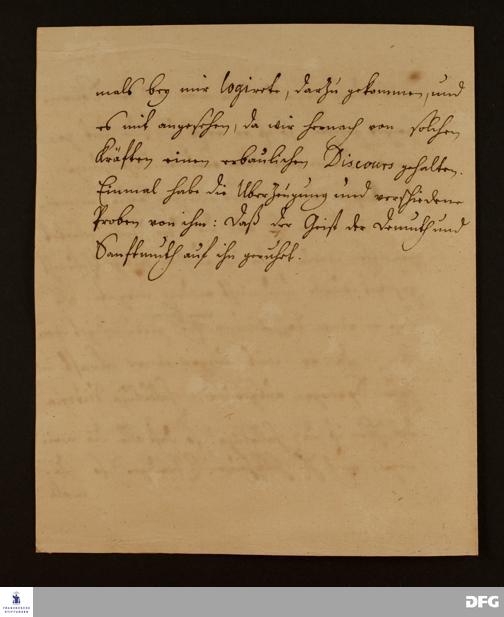 mals bey mir logirete, darzu gekommen, und
es mit angesehen, da wir hernach von solchen
Kräften einen erbaulichen Discours gehalten.
Einmal habe die Uberzeugung und verschiedene
Proben von ihm: daß der Geist der Demuth und
Sanftmuth auf ihn geruhet.
FRANCKESCHE
STIFTUNGEN
DFG